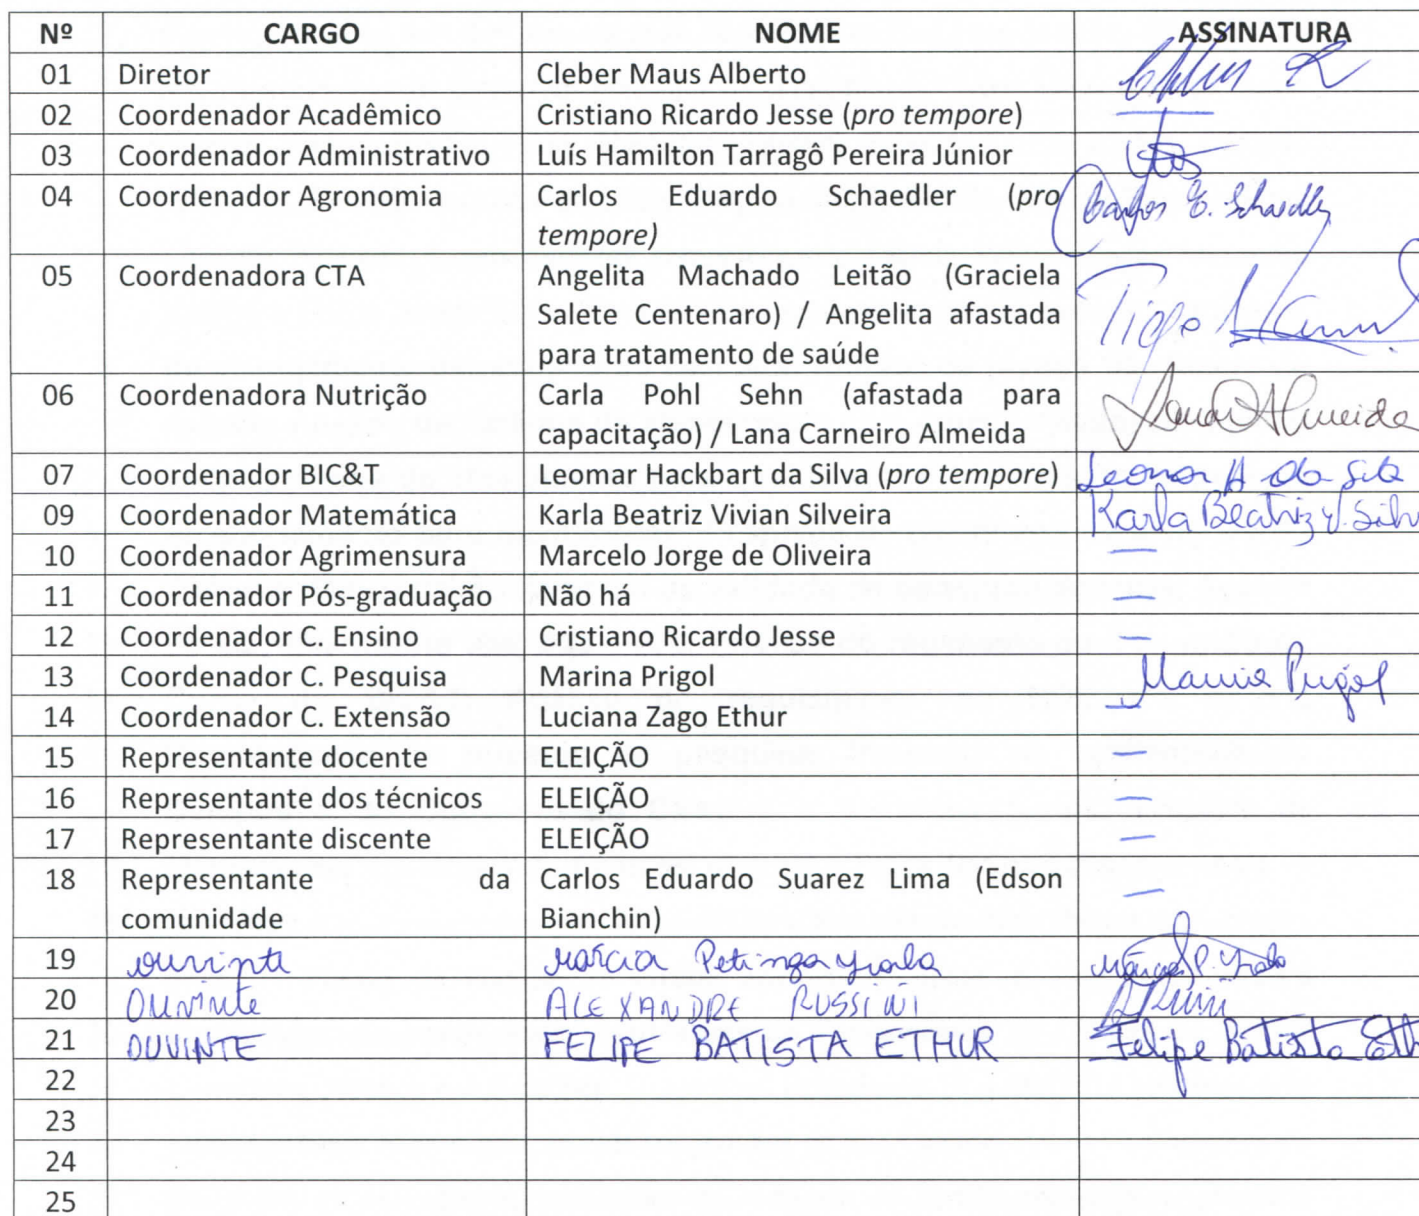 Nº CARGO NOME ASSINATURA
01 Diretor Cleber Maus Alberto
02 Coordenador Acadêmico Cristiano Ricardo Jesse (pro tempore)
03 Coordenador Administrativo Luís Hamilton Tarragô Pereira Júnior
04 Coordenador Agronomia Carlos Eduardo Schaedler (pro Carlos E. Schaedler
tempore)
05 Coordenadora CTA Angelita Machado Leitão (Graciela
Salete Centenaro) / Angelita afastada Tiago
para tratamento de saúde
06 Coordenadora Nutrição Carla Pohl Sehn (afastada para
capacitação) / Lana Carneiro Almeida Lana Almeida
07 Coordenador BIC&T Leomar Hackbart da Silva (pro tempore) Leomar H da Silva
09 Coordenador Matemática Karla Beatriz Vivian Silveira Karla Beatriz V. Silv
10 Coordenador Agrimensura Marcelo Jorge de Oliveira —
11 Coordenador Pós-graduação Não há —
12 Coordenador C. Ensino Cristiano Ricardo Jesse —
13 Coordenador C. Pesquisa Marina Prigol Marina Prigol
14 Coordenador C. Extensão Luciana Zago Ethur —
15 Representante docente ELEIÇÃO —
16 Representante dos técnicos ELEIÇÃO —
17 Representante discente ELEIÇÃO —
18 Representante da Carlos Eduardo Suarez Lima (Edson —
comunidade Bianchin)
19 ouvinte Márcia Petinga Yrala Márcia P. Yrala
20 Ouvinte ALEXANDRE RUSSINI
21 OUVINTE FELIPE BATISTA ETHUR Felipe Batista Eth
22
23
24
25